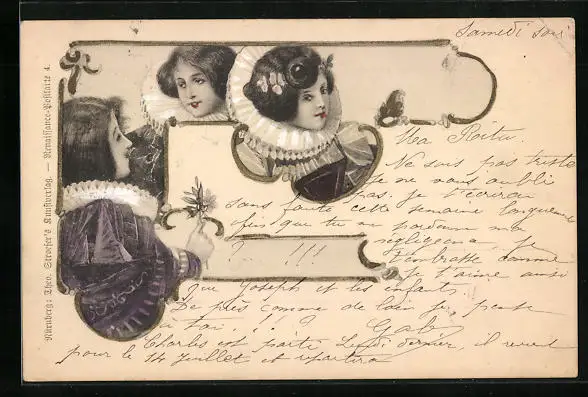 Nürnberg: Theo. Stroefer's Kunstverlag. — Renaissance-Postkarte 4.
Samedi soir
Ma
Ne sois pas triste
je ne vous oubli
pas. je t'écrirai
sans faute cette semaine longuement
afin que tu me pardonne ma
négligence. Je
? .. !!!
t'embrasse comme
je t'aime ainsi
que Joseph et les enfants.
De près comme de loin je pense
à toi. !! ! Gabi
Charles est parti Lundi dernier, il revient
pour le 14 Juillet et repartira